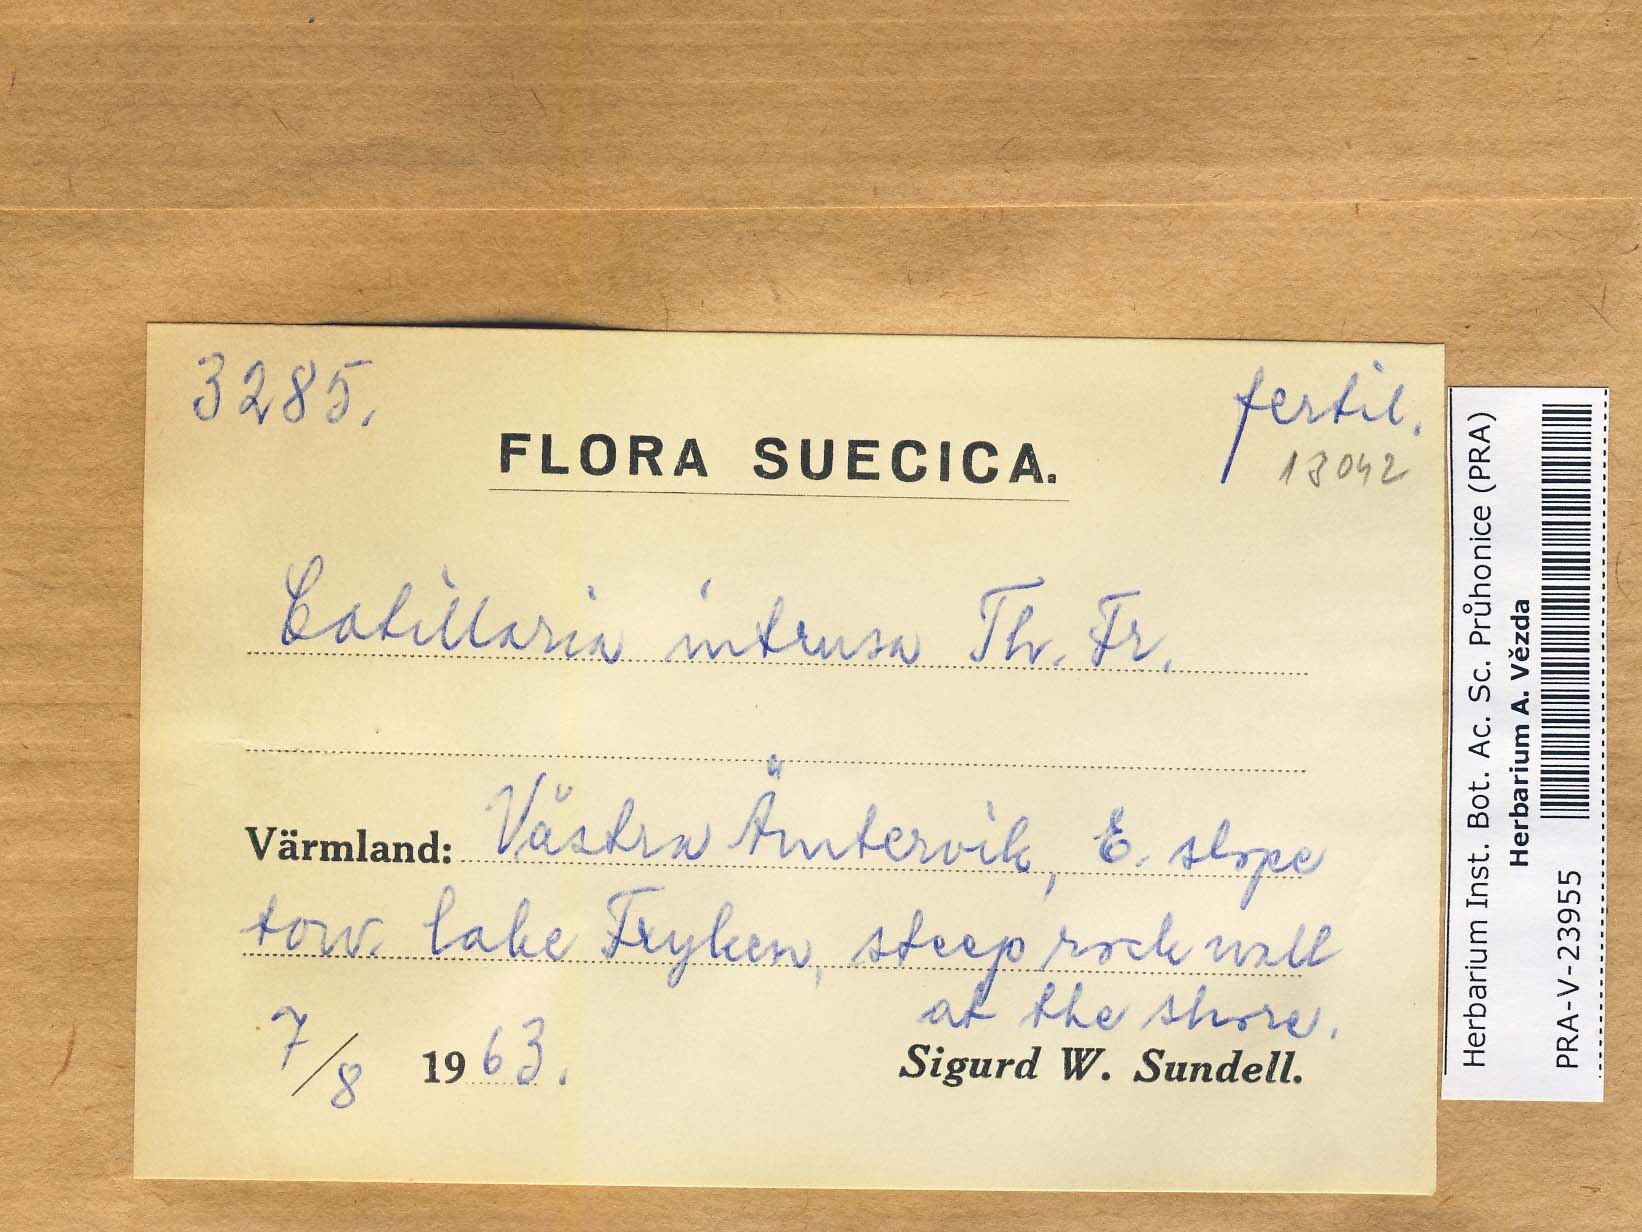 3285.
fertil.
13042
FLORA SUECICA.
Catillaria intrusa Th. Fr.
Värmland: Västra Ämtervik, E. slope
tow. lake Fryken, steep rock wall
at the shore.
7/8 1963.
Sigurd W. Sundell.
Herbarium Inst. Bot. Ac. Sc. Průhonice (PRA)
Herbarium A. Vězda
PRA-V-23955